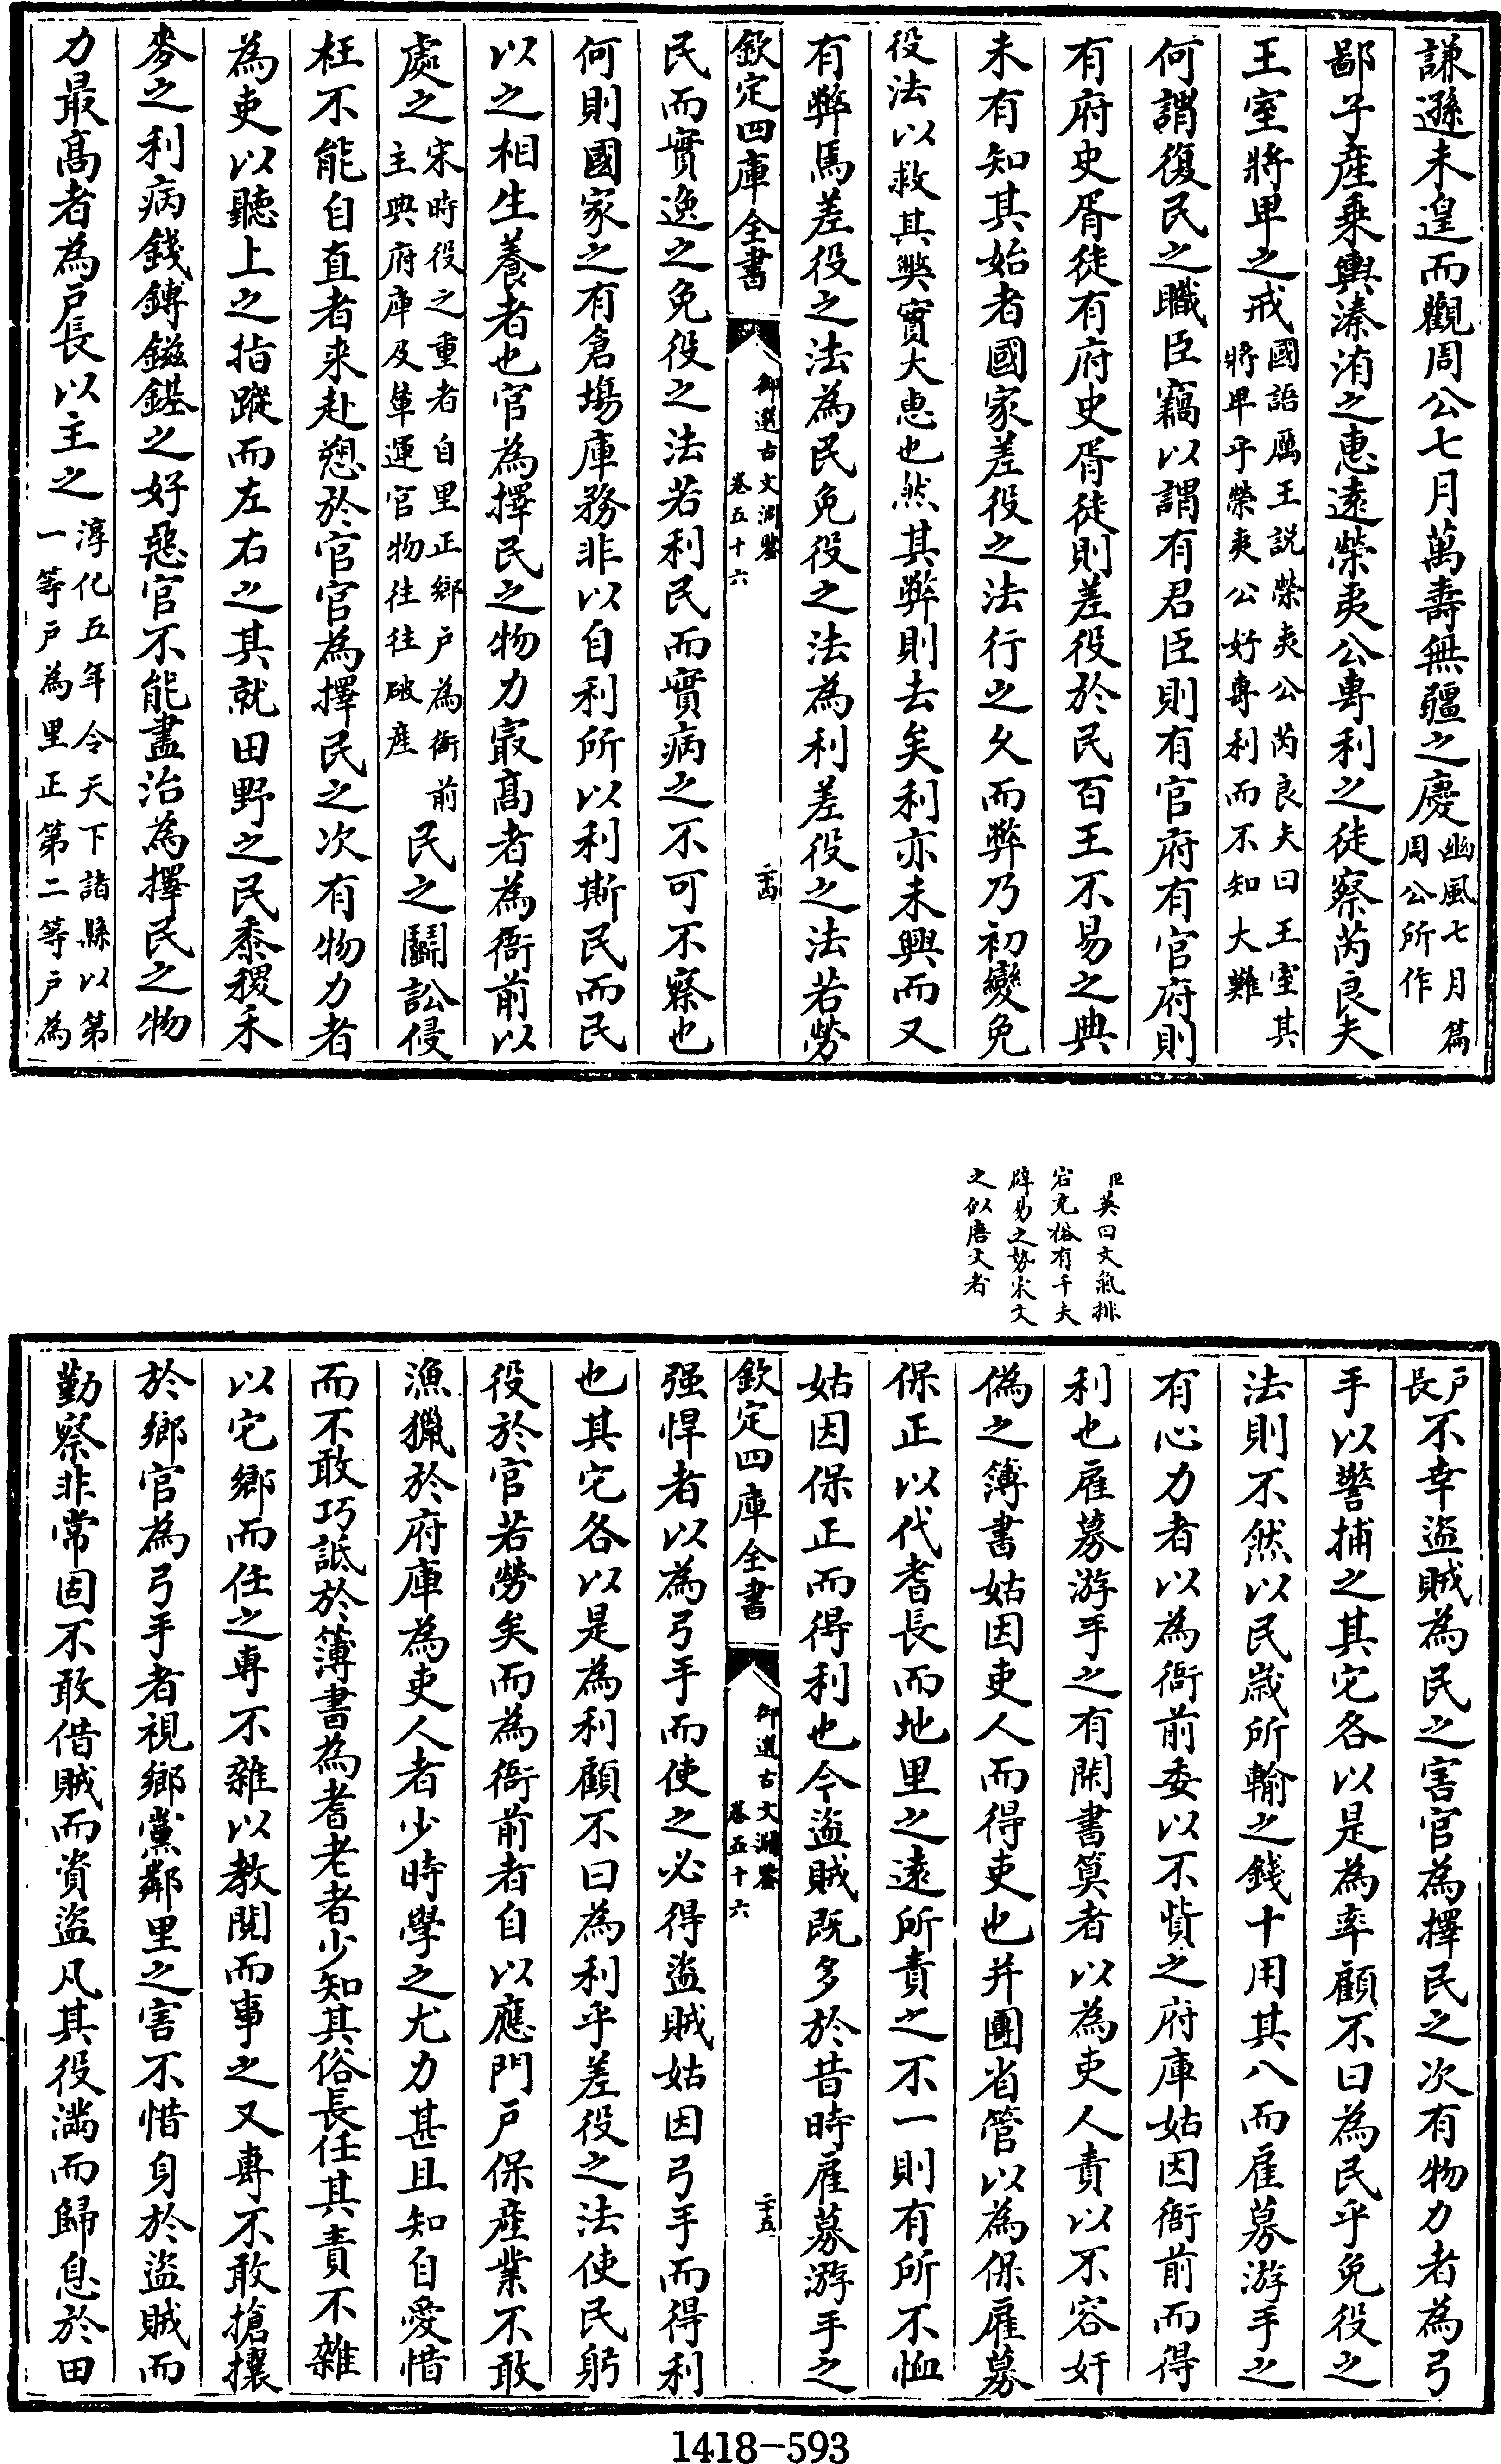 謙遜未遑而觀周公七月萬壽無疆之慶豳風七月篇周公所作
鄙子產乗輿溱洧之惠逺榮夷公専利之徒察芮良夫
王室將卑之戒國語厲王説榮夷公芮良夫曰王室其將卑乎榮夷公好専利而不知大難
何謂復民之職臣竊以謂有君臣則有官府有官府則
有府史胥徒有府史胥徒則差役於民百王不易之典
未有知其始者國家差役之法行之久而弊乃初變免
役法以救其弊實大惠也然其弊則去矣利亦未興而又
有弊焉差役之法為民免役之法為利差役之法若勞
欽定四庫全書
御選古文淵鑒
卷五十六
二十四
民而實逸之免役之法若利民而實病之不可不察也
何則國家之有倉場庫務非以自利所以利斯民而民
以之相生養者也官為擇民之物力㝡髙者為衙前以
處之宋時役之重者自里正鄉戸為衙前主典府庫及輦運官物往往破産民之鬭訟侵
枉不能自直者来赴愬於官官為擇民之次有物力者
為吏以聽上之指蹤而左右之其就田野之民黍稷禾
麥之利病錢鎛鎡錤之好惡官不能盡治為擇民之物
力最髙者為戸長以主之淳化五年令天下諸縣以第一等戸為里正第二等戸為
戸長不幸盜賊為民之害官為擇民之次有物力者為弓
手以警捕之其它各以是為率顧不曰為民乎免役之
法則不然以民嵗所輸之錢十用其八而雇募游手之
有心力者以為衙前委以不貲之府庫姑因衙前而得
利也雇募游手之有閑書筭者以為吏人責以不容奸
偽之簿書姑因吏人而得吏也并團省管以為保雇募
保正以代耆長而地里之逺所責之不一則有所不恤
姑因保正而得利也今盜賊既多於昔時雇募游手之
欽定四庫全書
御選古文淵鑒
卷五十六
二十五
强悍者以為弓手而使之必得盜賊姑因弓手而得利
也其它各以是為利顧不曰為利乎差役之法使民躬
役於官若勞矣而為衙前者自以應門戸保産業不敢
漁獵於府庫為吏人者少時學之尤力甚且知自愛惜
而不敢巧詆於簿書為耆老者少知其俗長任其責不雜
以它鄉而任之専不雜以教閱而事之又専不敢搶攘
於鄉官為弓手者視鄉黨鄰里之害不惜身於盜賊而
勤察非常固不敢借賊而資盜凡其役滿而歸息於田
臣英曰文氣排
宕充裕有千夫
辟易之勢宋文
之似唐文者
1418-593